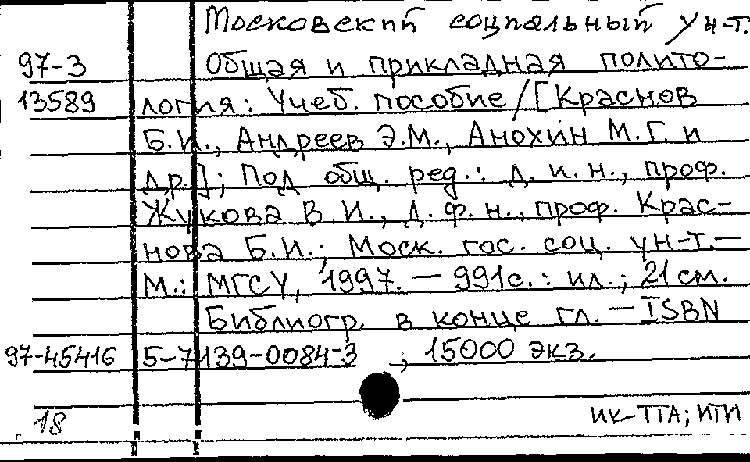 Московский социальный ун-т.
97-3 Общая и прикладная полито-
13589 логия: Учеб. пособие / [Краснов
Б.И., Андреев Э.М., Анохин М.Г. и
др.]; Под общ. ред.: д. и. н., проф.
Жукова В.И., д. ф. н., проф. Крас-
нова Б.И.; Моск. гос. соц. ун-т. —
М.: МГСУ, 1997. — 991с.: ил.; 21 см.
Библиогр. в конце гл. — ISBN
97-45416 5-7139-0084-3 ; 15000 экз.
18 ИК-ТТА; ИТИ